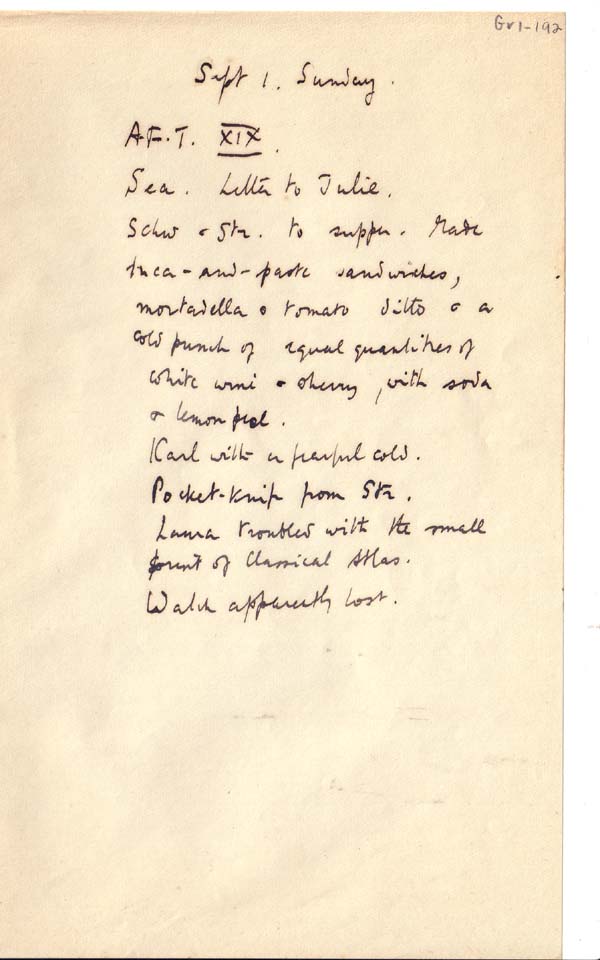 Gv1-192
Sept 1. Sunday.
A.F.T. XIX.
Sea. Letter to Julie.
Schw & Str. to supper. Made
-and-paste sandwiches,
mortadella & tomato ditto & a
cold punch of equal quantities of
white wine & sherry, with soda
& lemon peel.
Karl with a fearful cold.
Pocket-knife from Str.
Laura troubled with the small
print of Classical Atlas.
Watch apparently lost.